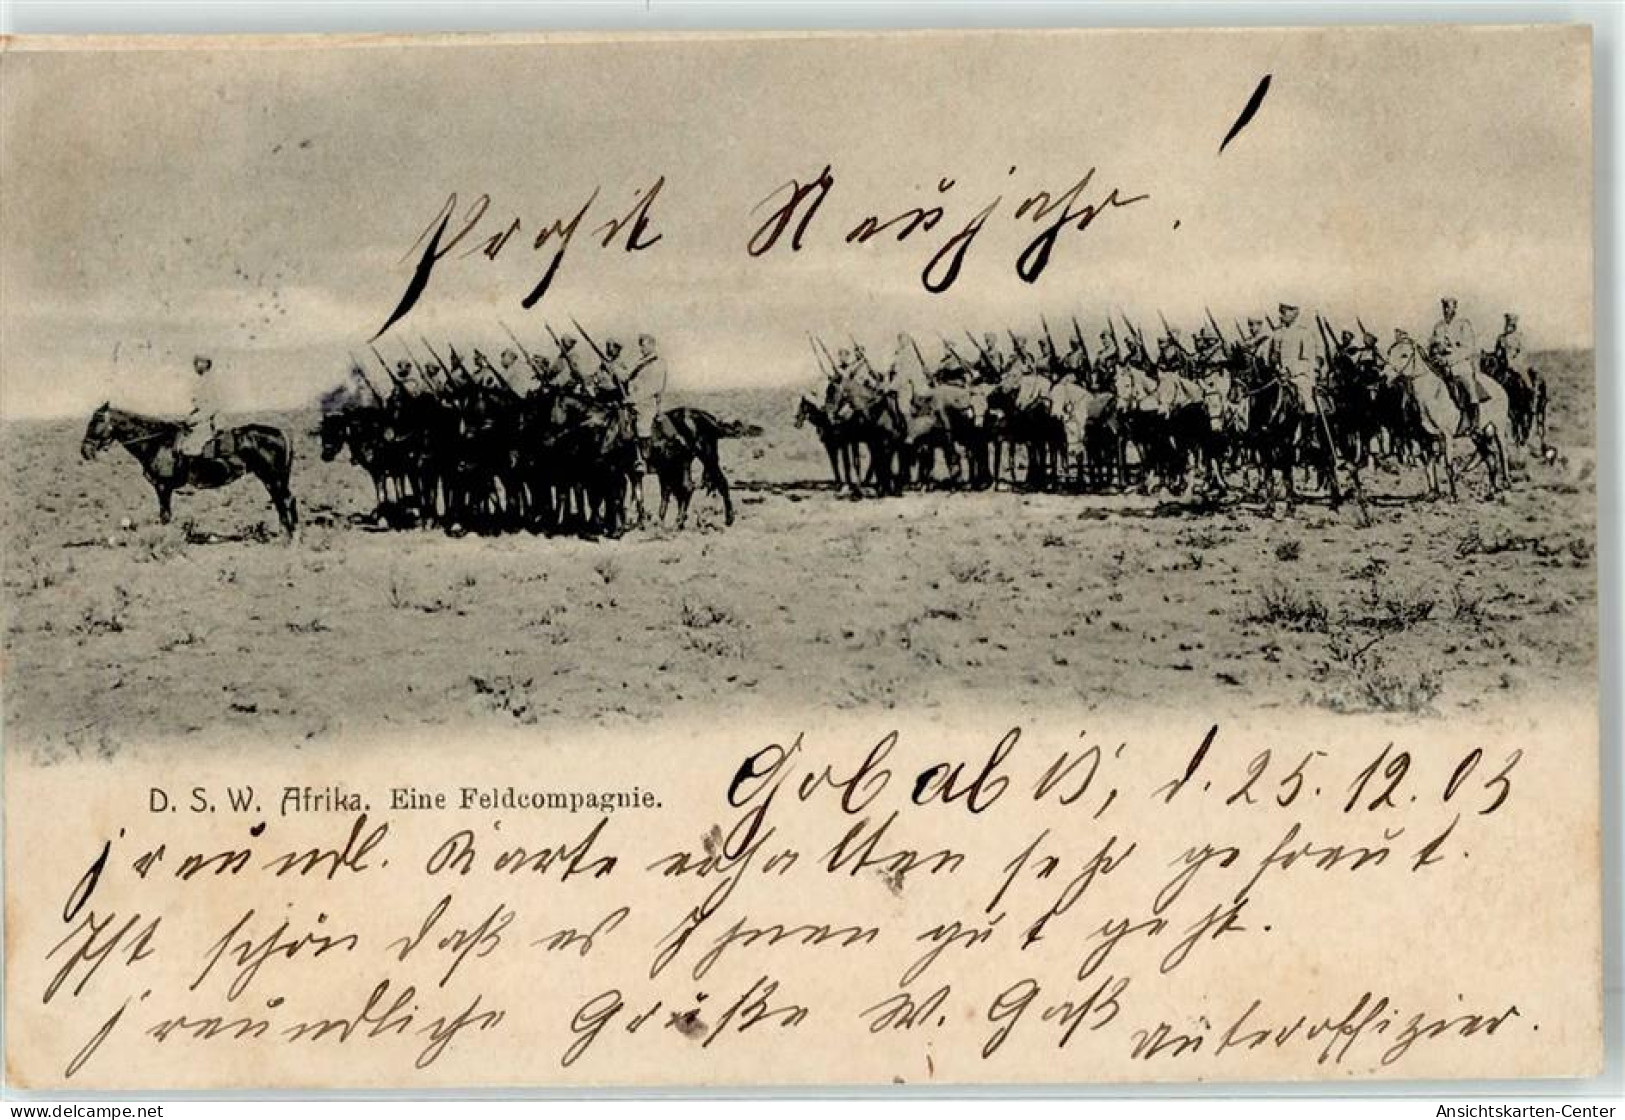 Prosit Neujahr!
D. S. W. Afrika. Eine Feldcompagnie.
Gobabis, d. 25. 12. 03
freundl. Karte erhalten sehr gefreut.
Ist schön daß es Ihnen gut geht.
freundliche Grüße W. Gaß Unteroffizier.
Ansichtskarten-Center
www.delcampe.net
picture-berlin